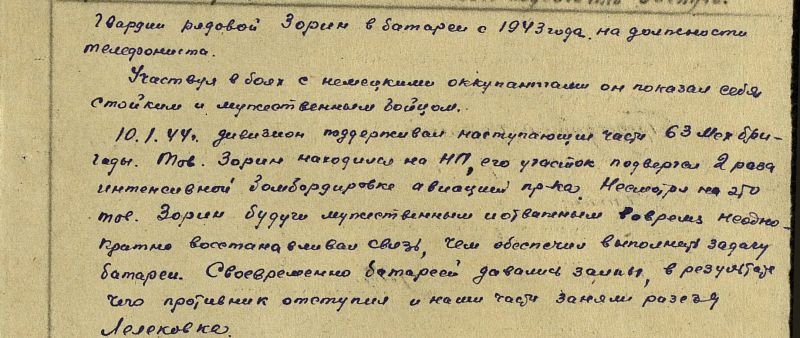 Гвардии рядовой Зорин в батареи с 1943 года на должности
телефониста.
Участвуя в боях с немецкими оккупантами он показал себя
стойким и мужественным бойцом.
10.1.44г. дивизион поддерживал наступающие части 63 Мех бри-
гады. Тов. Зорин находился на НП, его участок подвергся 2 раза
интенсивной бомбордировке авиации пр-ка. Несмотря на это
тов. Зорин будучи мужественным и отважным вовремя неодно-
кратно восстанавливал связь, чем обеспечил выполнить задачу
батареи. Своевременно батареей давались залпы, в результате
чего противник отступил и наши части заняли разезд
Лелековка.